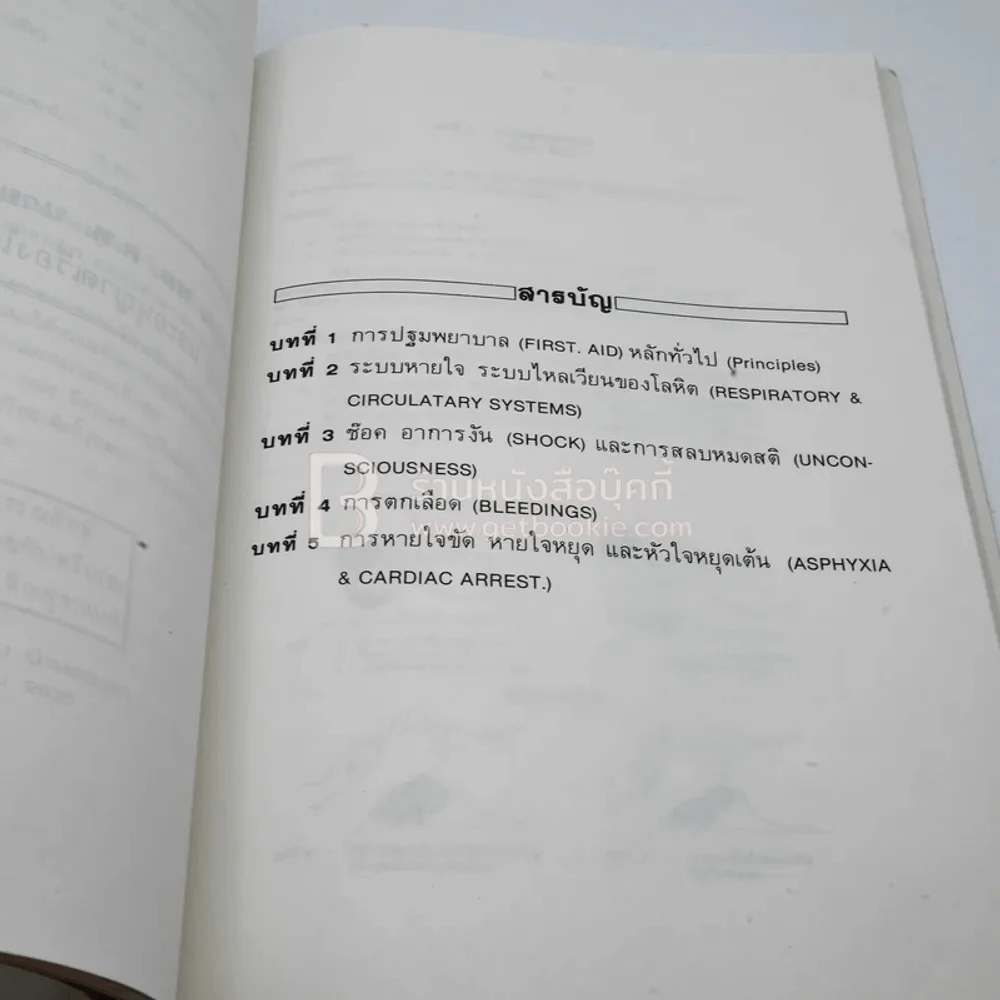 สารบัญ
บทที่ 1 การปฐมพยาบาล (FIRST. AID) หลักทั่วไป (Principles)
บทที่ 2 ระบบหายใจ ระบบไหลเวียนของโลหิต (RESPIRATORY &
CIRCULATARY SYSTEMS)
บทที่ 3 ช๊อค อาการงัน (SHOCK) และการสลบหมดสติ (UNCON-
SCIOUSNESS)
ร้านหนังสือบุ๊คกี้
บทที่ 4 การตกเลือด (BLEEDINGS)
www.getbookie.com
บทที่ 5 การหายใจขัด หายใจหยุด และหัวใจหยุดเต้น (ASPHYXIA
& CARDIAC ARREST.)